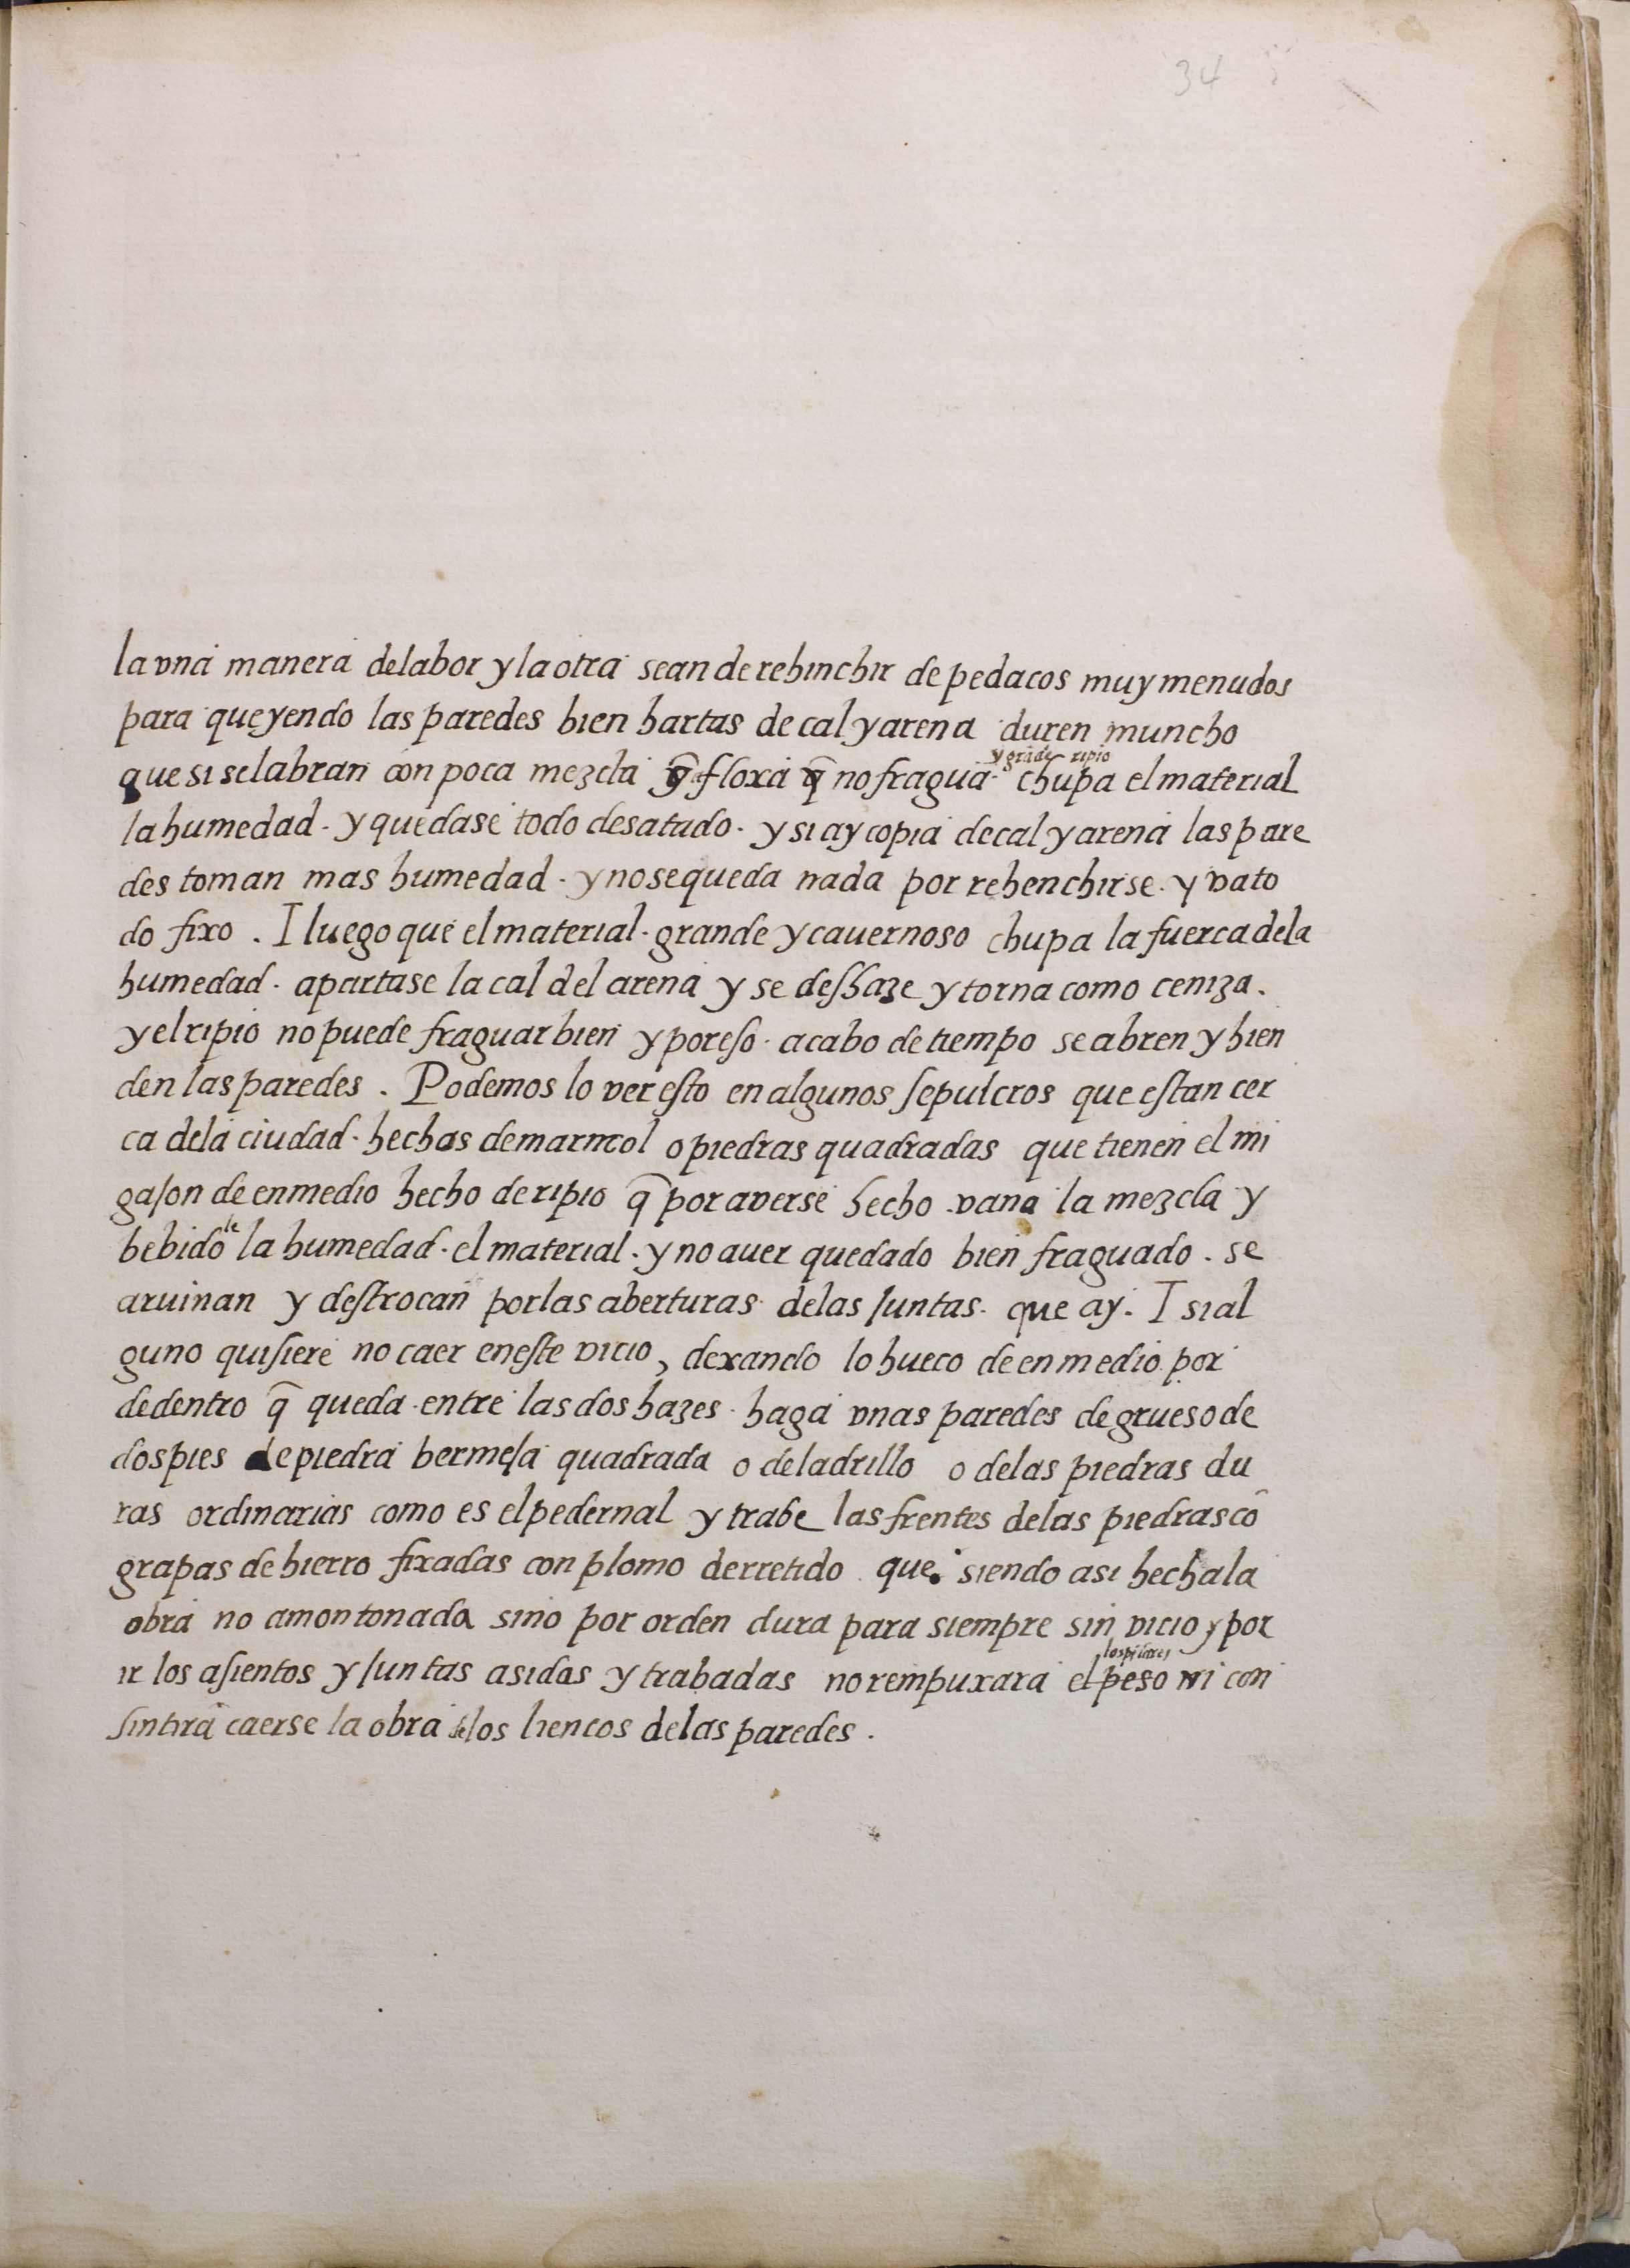 34
la vna manera de labor y la otra sean de rehinchir de pedacos muy menudos
para que yendo las paredes bien hartas de cal y arena duren muncho
y gråde ripio
que si se labran con poca mezcla floxa q̃ no fragua. chupa el material
la humedad. y quedase todo desatado. y si ay copia de cal y arena las pare
des toman mas humedad. y no se queda nada por rehenchirse. y va to
do fixo. I luego que el material. grande y cauernoso chupa la fuerca de la
humedad. apartase la cal del arena y se desbaze y torna como ceniza.
y el ripio no puede fraguar bien y por eso. acabo de tiempo se abren y hien
den las paredes. Podemos lo ver esto en algunos sepulcros que estan cer
ca dela ciudad. hechas de marmol o piedras quadradas que tienen el mi
gajon de enmedio hecho de ripio q̃ por averse hecho vana la mezcla y
bebidole la humedad. el material. y no auer quedado bien fraguado. se
aruinan y destrocan por las aberturas delas Juntas. que ay. I si al
guno quisiere no caer en este vicio, dexando lo hueco de en medio por
de dentro q̃ queda entre las dos hazes. haga vnas paredes de grueso de
dos pies de piedra bermeja quadrada o de ladrillo o delas piedras du
ras ordinarias como es el pedernal y trabe las frentes delas piedras cõ
grapas de hierro fixadas con plomo derretido que. siendo asi hecha la
obra no amontonada sino por orden dura para siempre sin vicio y por
los pilares
ir los asientos y Juntas asidas y trabadas no rempuxara el peso ni con
sintira caerse la obra de los liencos delas paredes.